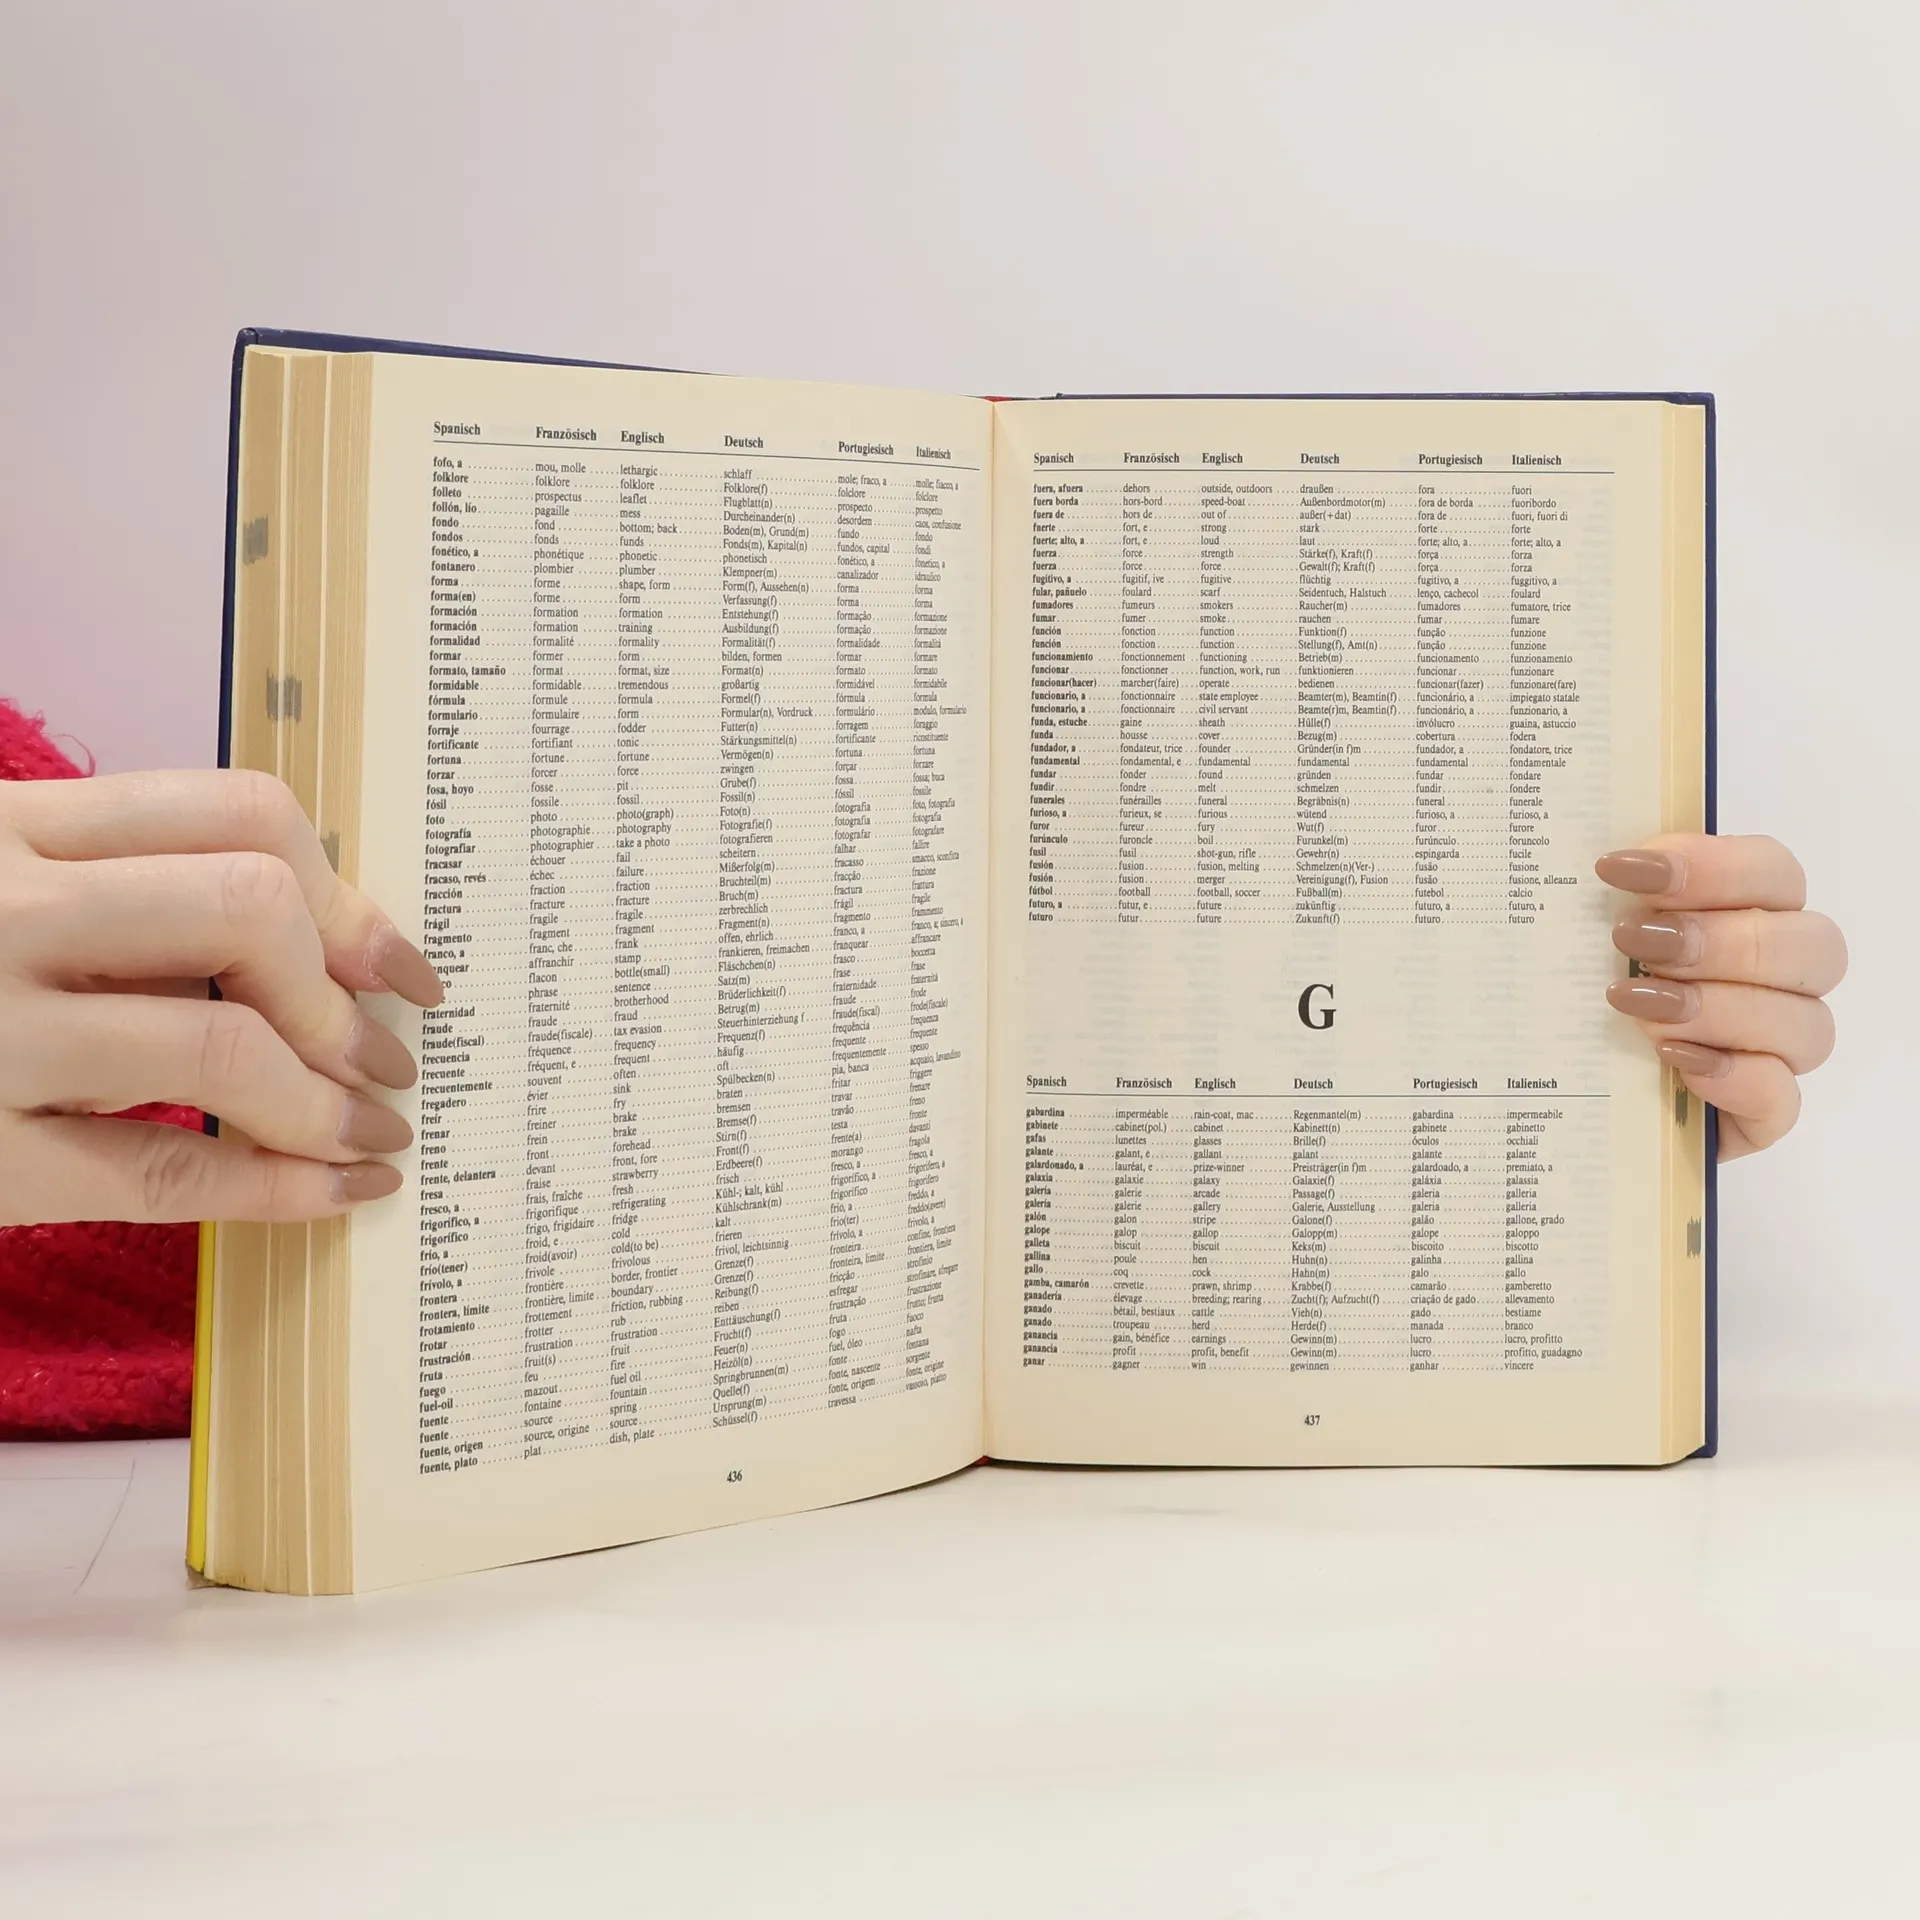 Spanisch Französisch Englisch Deutsch Portugiesisch Italienisch
fofo, a ............ mou, molle ...... lethargic ............ schlaff ............ mole; fraco, a ...... molle; fiacco, a
folklore ............ folklore ............ folklore ............ Folklore(f) ............ folclore ............ folclore
folleto ............ prospectus ...... leaflet ............ Flugblatt(n) ............ prospecto ............ prospetto
follón, lío ............ pagaille ............ mess ............ Durcheinander(n) ...... desordem ............ caos, confusione
fondo ............ fond ............ bottom; back ...... Boden(m), Grund(m) ...... fundo ............ fondo
fondos ............ fonds ............ funds ............ Fonds(m), Kapital(n) ... fundos, capital ...... fondi
fonético, a ............ phonétique ...... phonetic ............ phonetisch ............ fonético, a ............ fonetico, a
fontanero ............ plombier ............ plumber ............ Klempner(m) ............ canalizador ............ idraulico
forma ............ forme ............ shape, form ...... Form(f), Aussehen(n) ... forma ............ forma
forma(en) ............ forme ............ form ............ Verfassung(f) ............ forma ............ forma
formación ............ formation ............ formation ............ Entstehung(f) ............ formação ............ formazione
formación ............ formation ............ training ............ Ausbildung(f) ............ formação ............ formazione
formalidad ............ formalité ............ formality ............ Formalität(f) ............ formalidade ............ formalità
formar ............ former ............ form ............ bilden, formen ............ formar ............ formare
formato, tamaño ...... format ............ format, size ...... Format(n) ............ formato ............ formato
formidable ............ formidable ...... tremendous ...... großartig ............ formidável ............ formidabile
fórmula ............ formule ............ formula ............ Formel(f) ............ fórmula ............ formula
formulario ............ formulaire ...... form ............ Formular(n), Vordruck ... formulário ............ modulo, formulario
forraje ............ fourrage ............ fodder ............ Futter(n) ............ forragem ............ foraggio
fortificante ............ fortifiant ............ tonic ............ Stärkungsmittel(n) ...... fortificante ............ ricostituente
fortuna ............ fortune ............ fortune ............ Vermögen(n) ............ fortuna ............ fortuna
forzar ............ forcer ............ force ............ zwingen ............ forçar ............ forzare
fosa, hoyo ............ fosse ............ pit ............ Grube(f) ............ fossa ............ fossa; buca
fósil ............ fossile ............ fossil ............ Fossil(n) ............ fóssil ............ fossile
foto ............ photo ............ photo(graph) ...... Foto(n) ............ fotografia ............ foto, fotografia
fotografía ............ photographie ... photography ...... Fotografie(f) ............ fotografia ............ fotografia
fotografiar ............ photographier ... take a photo ...... fotografieren ............ fotografar ............ fotografare
fracasar ............ échouer ............ fail ............ scheitern ............ falhar ............ fallire
fracaso, revés ...... échec ............ failure ............ Mißerfolg(m) ............ fracasso ............ smacco, sconfitta
fracción ............ fraction ............ fraction ............ Bruchteil(m) ............ fracção ............ frazione
fractura ............ fracture ............ fracture ............ Bruch(m) ............ fractura ............ frattura
frágil ............ fragile ............ fragile ............ zerbrechlich ............ frágil ............ fragile
fragmento ............ fragment ............ fragment ............ Fragment(n) ............ fragmento ............ frammento
franco, a ............ franc, che ............ frank ............ offen, ehrlich ............ franco, a ............ franco, a; sincero, a
nquear ............ affranchir ............ stamp ............ frankieren, freimachen ... franquear ............ affrancare
co ............ flacon ............ bottle(small) ...... Fläschchen(n) ............ frasco ............ boccetta
e ............ phrase ............ sentence ............ Satz(m) ............ frase ............ frase
fraternidad ............ fraternité ............ brotherhood ...... Brüderlichkeit(f) ............ fraternidade ............ fraternità
fraude ............ fraude ............ fraud ............ Betrug(m) ............ fraude ............ frode
fraude(fiscal) ............ fraude(fiscale) ... tax evasion ...... Steuerhinterziehung f ... fraude(fiscal) ............ frode(fiscale)
frecuencia ............ fréquence ............ frequency ............ Frequenz(f) ............ frequência ............ frequenza
frecuente ............ fréquent, e ............ frequent ............ häufig ............ frequente ............ frequente
frecuentemente ...... souvent ............ often ............ oft ............ frequentemente ...... spesso
fregadero ............ évier ............ sink ............ Spülbecken(n) ............ pia, banca ............ acquaio, lavandino
freír ............ frire ............ fry ............ braten ............ fritar ............ friggere
frenar ............ freiner ............ brake ............ bremsen ............ travar ............ frenare
freno ............ frein ............ brake ............ Bremse(f) ............ travão ............ freno
frente ............ front ............ forehead ............ Stirn(f) ............ testa ............ fronte
frente, delantera ...... devant ............ front, fore ...... Front(f) ............ frente(a) ............ davanti
fresa ............ fraise ............ strawberry ............ Erdbeere(f) ............ morango ............ fragola
fresco, a ............ frais, fraîche ...... fresh ............ frisch ............ fresco, a ............ fresco, a
frigorífico, a ............ frigorifique ...... refrigerating ...... Kühl-; kalt, kühl ............ frigorífico, a ............ frigorifero, a
frigorífico ............ frigo, frigidaire ... fridge ............ Kühlschrank(m) ............ frigorífico ............ frigorifero
frío, a ............ froid, e ............ cold ............ kalt ............ frio, a ............ freddo, a
frío(tener) ............ froid(avoir) ...... cold(to be) ...... frieren ............ frio(ter) ............ freddo(avere)
frívolo, a ............ frivole ............ frivolous ............ frivol, leichtsinnig ...... frívolo, a ............ frivolo, a
frontera ............ frontière ............ border, frontier ... Grenze(f) ............ fronteira ............ confine, frontiera
frontera, límite ...... frontière, limite ... boundary ............ Grenze(f) ............ fronteira, limite ...... frontiera, limite
frotamiento ............ frottement ...... friction, rubbing ... Reibung(f) ............ fricção ............ strofinio
frotar ............ frotter ............ rub ............ reiben ............ esfregar ............ strofinare, sfregare
frustración ............ frustration ...... frustration ...... Enttäuschung(f) ............ frustração ............ frustrazione
fruta ............ fruit(s) ............ fruit ............ Frucht(f) ............ fruta ............ frutto; frutta
fuego ............ feu ............ fire ............ Feuer(n) ............ fogo ............ fuoco
fuel-oil ............ mazout ............ fuel oil ............ Heizöl(n) ............ fuel, óleo ............ nafta
fuente ............ fontaine ............ fountain ............ Springbrunnen(m) ............ fonte ............ fontana
fuente ............ source ............ spring ............ Quelle(f) ............ fonte, nascente ...... sorgente
fuente, origen ...... source, origine ... source ............ Ursprung(m) ............ fonte, origem ...... fonte, origine
fuente, plato ...... plat ............ dish, plate ...... Schüssel(f) ............ travessa ............ vassoio, piatto
436
Spanisch Französisch Englisch Deutsch Portugiesisch Italienisch
fuera, afuera ...... dehors ............ outside, outdoors ... draußen ............ fora ............ fuori
fuera borda ...... hors-bord ...... speed-boat ...... Außenbordmotor(m) ... fora de borda ...... fuoribordo
fuera de ............ hors de ............ out of ............ außer(+dat) ............ fora de ............ fuori, fuori di
fuerte ............ fort, e ............ strong ............ stark ............ forte ............ forte
fuerte; alto, a ...... fort, e ............ loud ............ laut ............ forte; alto, a ...... forte; alto, a
fuerza ............ force ............ strength ............ Stärke(f), Kraft(f) ...... força ............ forza
fuerza ............ force ............ force ............ Gewalt(f); Kraft(f) ...... força ............ forza
fugitivo, a ............ fugitif, ive ...... fugitive ............ flüchtig ............ fugitivo, a ............ fuggitivo, a
fular, pañuelo ...... foulard ............ scarf ............ Seidentuch, Halstuch ... lenço, cachecol ...... foulard
fumadores ............ fumeurs ............ smokers ............ Raucher(m) ............ fumadores ............ fumatore, trice
fumar ............ fumer ............ smoke ............ rauchen ............ fumar ............ fumare
función ............ fonction ............ function ............ Funktion(f) ............ função ............ funzione
función ............ fonction ............ function ............ Stellung(f), Amt(n) ...... função ............ funzione
funcionamiento ...... fonctionnement ... functioning ...... Betrieb(m) ............ funcionamento ...... funzionamento
funcionar ............ fonctionner ...... function, work, run ... funktionieren ............ funcionar ............ funzionare
funcionar(hacer) ... marcher(faire) ... operate ............ bedienen ............ funcionar(fazer) ...... funzionare(fare)
funcionario, a ...... fonctionnaire ... state employee ... Beamter(m), Beamtin(f) ... funcionário, a ...... impiegato statale
funcionario, a ...... fonctionnaire ... civil servant ...... Beamte(r)m, Beamtin(f) ... funcionário, a ...... funzionario, a
funda, estuche ...... gaine ............ sheath ............ Hülle(f) ............ invólucro ............ guaina, astuccio
funda ............ housse ............ cover ............ Bezug(m) ............ cobertura ............ fodera
fundador, a ...... fondateur, trice ... founder ............ Gründer(in f)m ............ fundador, a ...... fondatore, trice
fundamental ...... fondamental, e ... fundamental ...... fundamental ............ fundamental ...... fondamentale
fundar ............ fonder ............ found ............ gründen ............ fundar ............ fondare
fundir ............ fondre ............ melt ............ schmelzen ............ fundir ............ fondere
funerales ............ funérailles ...... funeral ............ Begräbnis(n) ............ funeral ............ funerale
furioso, a ............ furieux, se ...... furious ............ wütend ............ furioso, a ............ furioso, a
furor ............ fureur ............ fury ............ Wut(f) ............ furor ............ furore
furúnculo ............ furoncle ............ boil ............ Furunkel(m) ............ furúnculo ............ foruncolo
fusil ............ fusil ............ shot-gun, rifle ...... Gewehr(n) ............ espingarda ............ fucile
fusión ............ fusion ............ fusion, melting ...... Schmelzen(n)(Ver-) ...... fusão ............ fusione
fusión ............ fusion ............ merger ............ Vereinigung(f), Fusion ... fusão ............ fusione, alleanza
fútbol ............ football ............ football, soccer ... Fußball(m) ............ futebol ............ calcio
futuro, a ............ futur, e ............ future ............ zukünftig ............ futuro, a ............ futuro, a
futuro ............ futur ............ future ............ Zukunft(f) ............ futuro ............ futuro
G
Spanisch Französisch Englisch Deutsch Portugiesisch Italienisch
gabardina ............ imperméable ... rain-coat, mac ... Regenmantel(m) ...... gabardina ............ impermeabile
gabinete ............ cabinet(pol.) ...... cabinet ............ Kabinett(n) ............ gabinete ............ gabinetto
gafas ............ lunettes ............ glasses ............ Brille(f) ............ óculos ............ occhiali
galante ............ galant, e ............ gallant ............ galant ............ galante ............ galante
galardonado, a ...... lauréat, e ...... prize-winner ...... Preisträger(in f)m ...... galardoado, a ...... premiato, a
galaxia ............ galaxie ............ galaxy ............ Galaxie(f) ............ galáxia ............ galassia
galería ............ galerie ............ arcade ............ Passage(f) ............ galeria ............ galleria
galería ............ galerie ............ gallery ............ Galerie, Ausstellung ... galeria ............ galleria
galón ............ galon ............ stripe ............ Galone(f) ............ galão ............ gallone, grado
galope ............ galop ............ gallop ............ Galopp(m) ............ galope ............ galoppo
galleta ............ biscuit ............ biscuit ............ Keks(m) ............ biscoito ............ biscotto
gallina ............ poule ............ hen ............ Huhn(n) ............ galinha ............ gallina
gallo ............ coq ............ cock ............ Hahn(m) ............ galo ............ gallo
gamba, camarón ... crevette ............ prawn, shrimp ... Krabbe(f) ............ camarão ............ gamberetto
ganadería ............ élevage ............ breeding; rearing ... Zucht(f); Aufzucht(f) ... criação de gado ...... allevamento
ganado ............ bétail, bestiaux ... cattle ............ Vieh(n) ............ gado ............ bestiame
ganado ............ troupeau ............ herd ............ Herde(f) ............ manada ............ branco
ganancia ............ gain, bénéfice ... earnings ............ Gewinn(m) ............ lucro ............ lucro, profitto
ganancia ............ profit ............ profit, benefit ...... Gewinn(m) ............ lucro ............ profitto, guadagno
ganar ............ gagner ............ win ............ gewinnen ............ ganhar ............ vincere
437